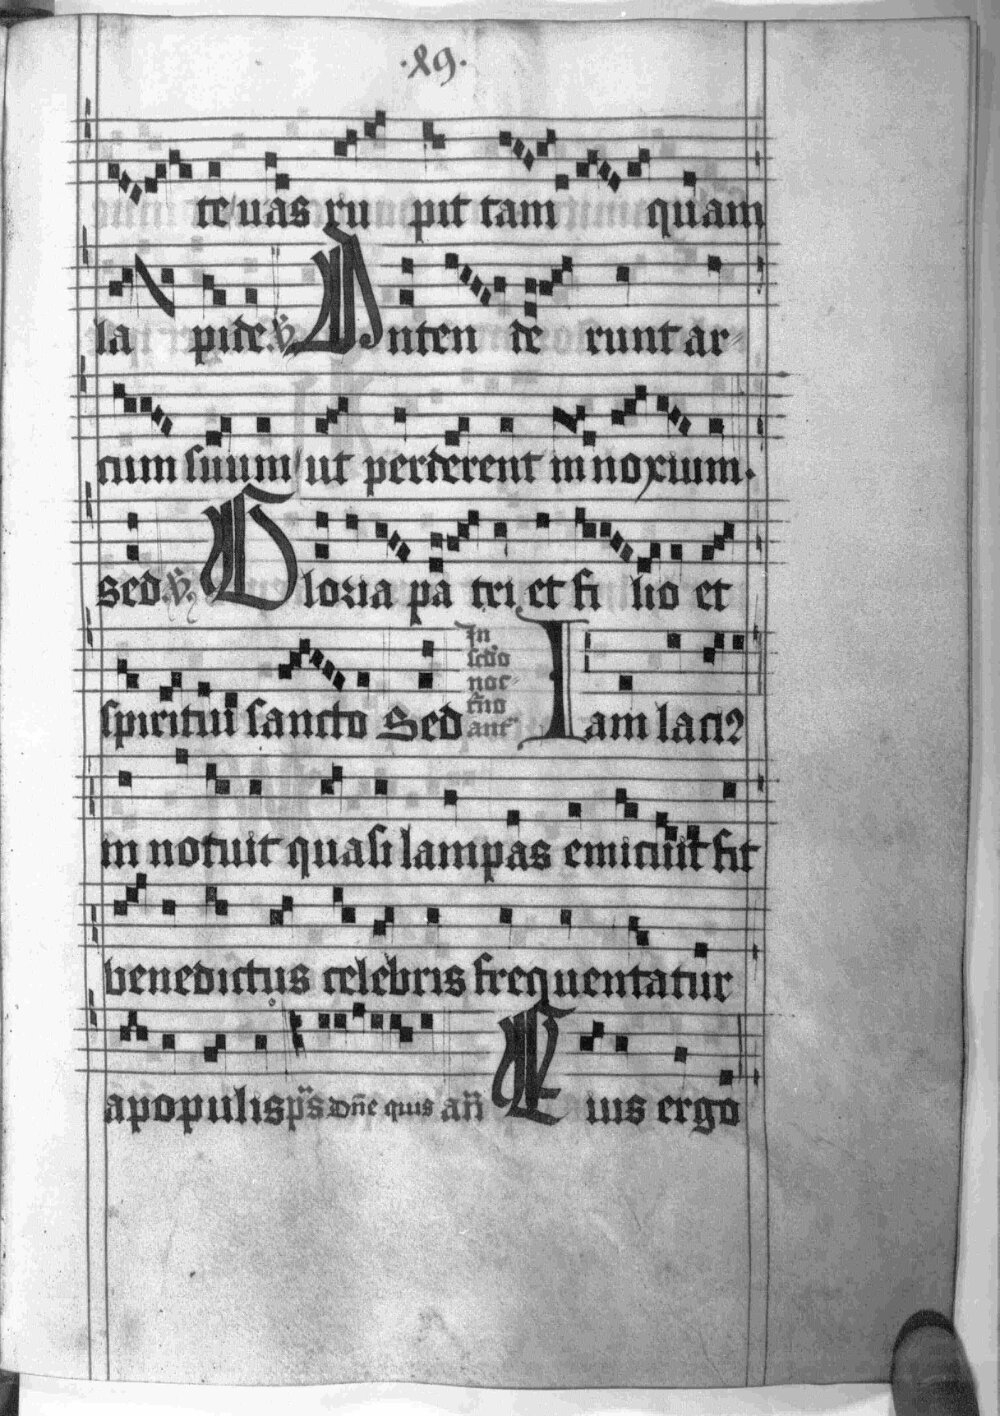 ·89·
te uas ru pit tam quam
la pide. ℣. Inten de runt ar
cum suum ut perderent in noxium.
sed. ℣. Gloria pa tri et fi lio et
spiritui sancto Sed In scdo noct̄no ant̄ Iam lati
in notuit quasi lampas emicuit fit
benedictus celebris frequentatur
a populis p̄s Dn̄e quis an̄ Eius ergo